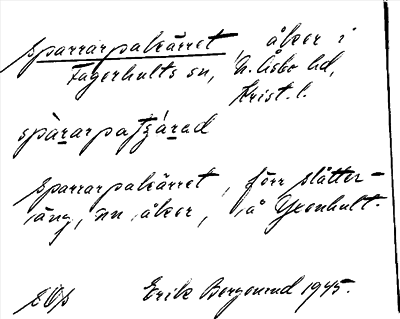 Sparrarpakärret åker i
Fagerhults sn, N. Åsbo hd,
Krist. l.
spàrarpaʈʂárad
Sparrarpakärret, förr slåtter-
äng, nu åker, å Yxenhult.
Erik Bergenrud 1945.